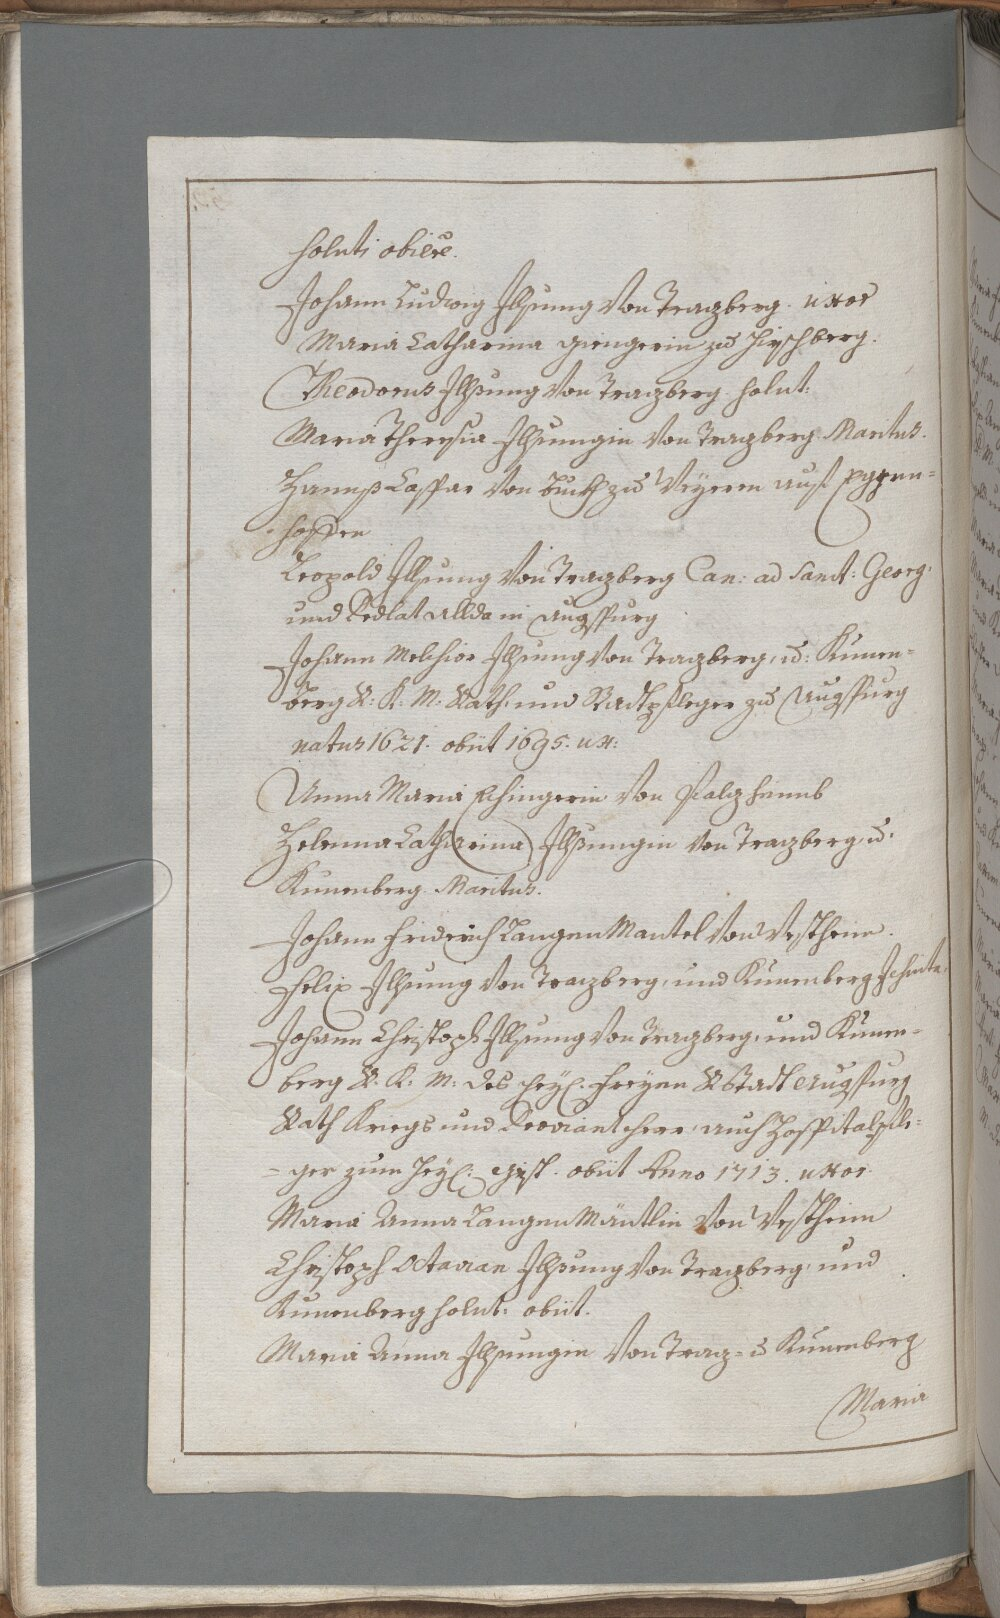 soluti obiere.
Johann Ludwig Illsung Von Tragberg. uxor
Maria Catharina Giengerin zu Hirschberg.
Theodorus Illsung Von Tragberg solut:
Maria Theresia Illsungin Von Tragberg Maritus.
Hannß Caspar Von Buech zu Weyeren auß
hoffen
Leopold Illsung Von Tragberg Can: ad Sanct: Georg:
und Prelat Allda in Augspurg
Johann Melchior Illsung Von Tragberg, u: Kunen-
berg R. K. M. Rath, und Stadtpfleger zu Augspurg
natus 1621. obiit 1695. ux:
Anna Maria Von Balzheimb
Helenna Catharina Illsungin Von Tragberg, u.
Kunenberg Maritus.
Johann Friderich LangenMantel Von Westheim.
Felix Illsung Von Tragberg, und Kunenberg Jesuita,
Johann Christoph Illsung Von Tragberg, und Kunen-
berg R. K. M: des Heyl: Freyen R Stadt Augspurg
Rath Kriegs und Proviantherr, auch Hospitalpfle-
-ger zum Heyl: Geist. obiit Anno 1713. uxor.
Maria Anna LangenMäntlin Von Westheim
Christoph Octavian Illsung Von Tragberg, und
Kunenberg solut: obiit.
Maria Anna Illsungin Von Trag- u Kunenberg
Maria